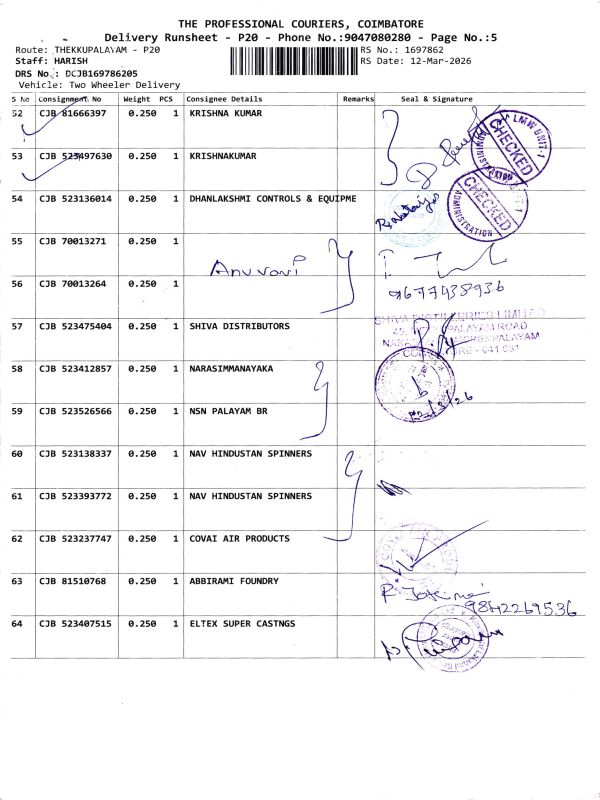 THE PROFESSIONAL COURIERS, COIMBATORE
Delivery Runsheet - P20 - Phone No.:9047080280 - Page No.:5
Route: THEKKUPALAYAM - P20
RS No.: 1697862
Staff: HARISH
RS Date: 12-Mar-2026
DRS No.: DCJB169786205
Vehicle: Two Wheeler Delivery
S No Consignment No Weight PCS Consignee Details Remarks Seal & Signature
52 CJB 81666397 0.250 1 KRISHNA KUMAR
LMW UNIT-1
CHECKED
ADMINISTRATION
53 CJB 523497630 0.250 1 KRISHNAKUMAR
54 CJB 523136014 0.250 1 DHANLAKSHMI CONTROLS & EQUIPME
CHECKED
ADMINISTRATION
55 CJB 70013271 0.250 1
Anuvavi
56 CJB 70013264 0.250 1
9677938936
57 CJB 523475404 0.250 1 SHIVA DISTRIBUTORS
SHIVA DISTRIBUTORS LIMITED
PALAYAM ROAD
641 031
58 CJB 523412857 0.250 1 NARASIMMANAYAKA
59 CJB 523526566 0.250 1 NSN PALAYAM BR
60 CJB 523138337 0.250 1 NAV HINDUSTAN SPINNERS
61 CJB 523393772 0.250 1 NAV HINDUSTAN SPINNERS
62 CJB 523237747 0.250 1 COVAI AIR PRODUCTS
63 CJB 81510768 0.250 1 ABBIRAMI FOUNDRY
9842269536
64 CJB 523407515 0.250 1 ELTEX SUPER CASTNGS